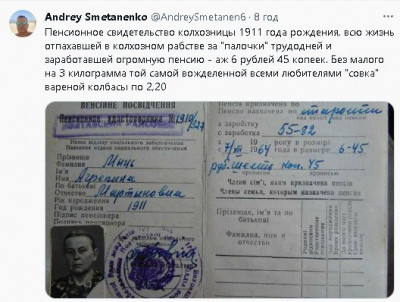 Andrey Smetanenko @AndreySmetanen6 · 8 год
Пенсионное свидетельство колхозницы 1911 года рождения, всю жизнь
отпахавшей в колхозном рабстве за "палочки" трудодней и
заработавшей огромную пенсию - аж 6 рублей 45 копеек. Без малого
на 3 килограмма той самой вожделенной всеми любителями "совка"
вареной колбасы по 2,20
ПЕНСІЙНЕ ПОСВІДЧЕННЯ
Пенсионное удостоверение №
Прізвище
Фамилия
Ім'я
Имя
По батькові
Отчество Мартыновна
Рік народження
Год рождения 1911
Підпис пенсіонера
Подпись пенсионера
Пенсія призначена по
Пенсия назначена по
с заработка 55-82
в розмірі
в размере 6-45
руб. шесть коп. 45
Член сім'ї, яким призначена пенсія
Члены семьи, которым назначена пенсия
Прізвище, ім'я та по
батькові
Фамилия, имя и
отчество